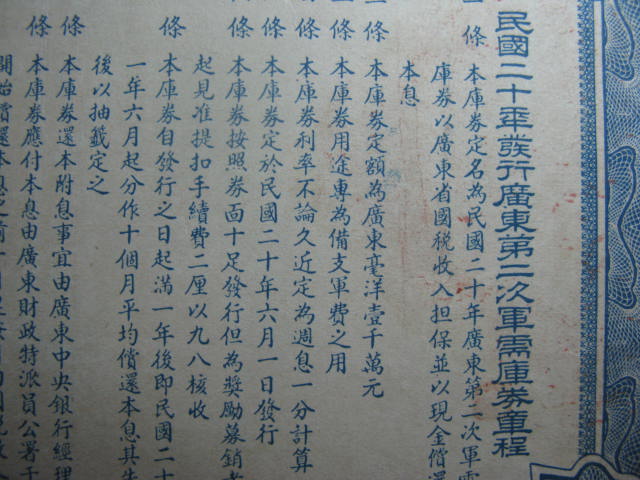 民國二十年發行廣東第二次軍需庫券章程
條 本庫券定名為民國二十年廣東第二次軍需
庫券以廣東省國稅收入担保並以現金償還
本息
條 本庫券定額為廣東毫洋壹千萬元
條 本庫券用途專為備支軍費之用
條 本庫券利率不論久近定為週息一分計算
條 本庫券定於民國二十年六月一日發行
條 本庫券按照券面十足發行但為獎勵募銷者
起見准提扣手續費二厘以九八核收
條 本庫券自發行之日起滿一年後即民國二十
一年六月起分作十個月平均償還本息其先
後以抽籤定之
條 本庫券還本附息事宜由廣東中央銀行經理
條 本庫券應付本息由廣東財政特派員公署于
開始償還本息之前一個